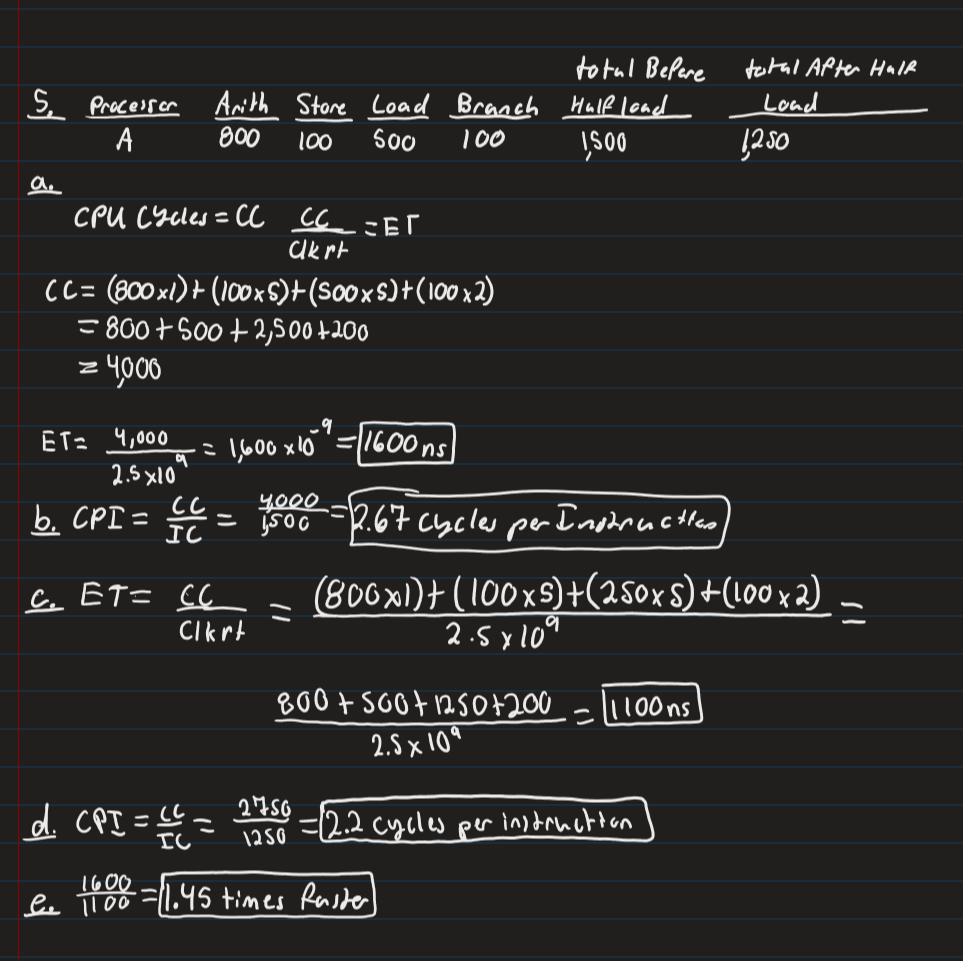 total Before total After Half
5. Processor Arith Store Load Branch Half load Load
A 800 100 500 100 1,500 1,250
a.
CPU Cycles = CC CC/Clkrt = ET
CC = (800x1)+(100x5)+(500x5)+(100x2)
= 800+500+2,500+200
= 4,000
ET= 4,000/2.5x10^9 = 1,600 x10^-9 = 1600 ns
b. CPI = CC/IC = 4,000/1,500 = 2.67 cycles per Instruction
c. ET= CC/Clkrt = (800x1)+(100x5)+(250x5)+(100x2)/2.5x10^9 =
800+500+1250+200/2.5x10^9 = 1100ns
d. CPI = CC/IC = 2750/1250 = 2.2 cycles per instruction
e. 1600/1100 = 1.45 times faster